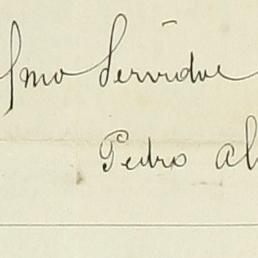 Smo Servidor
Pedro Al